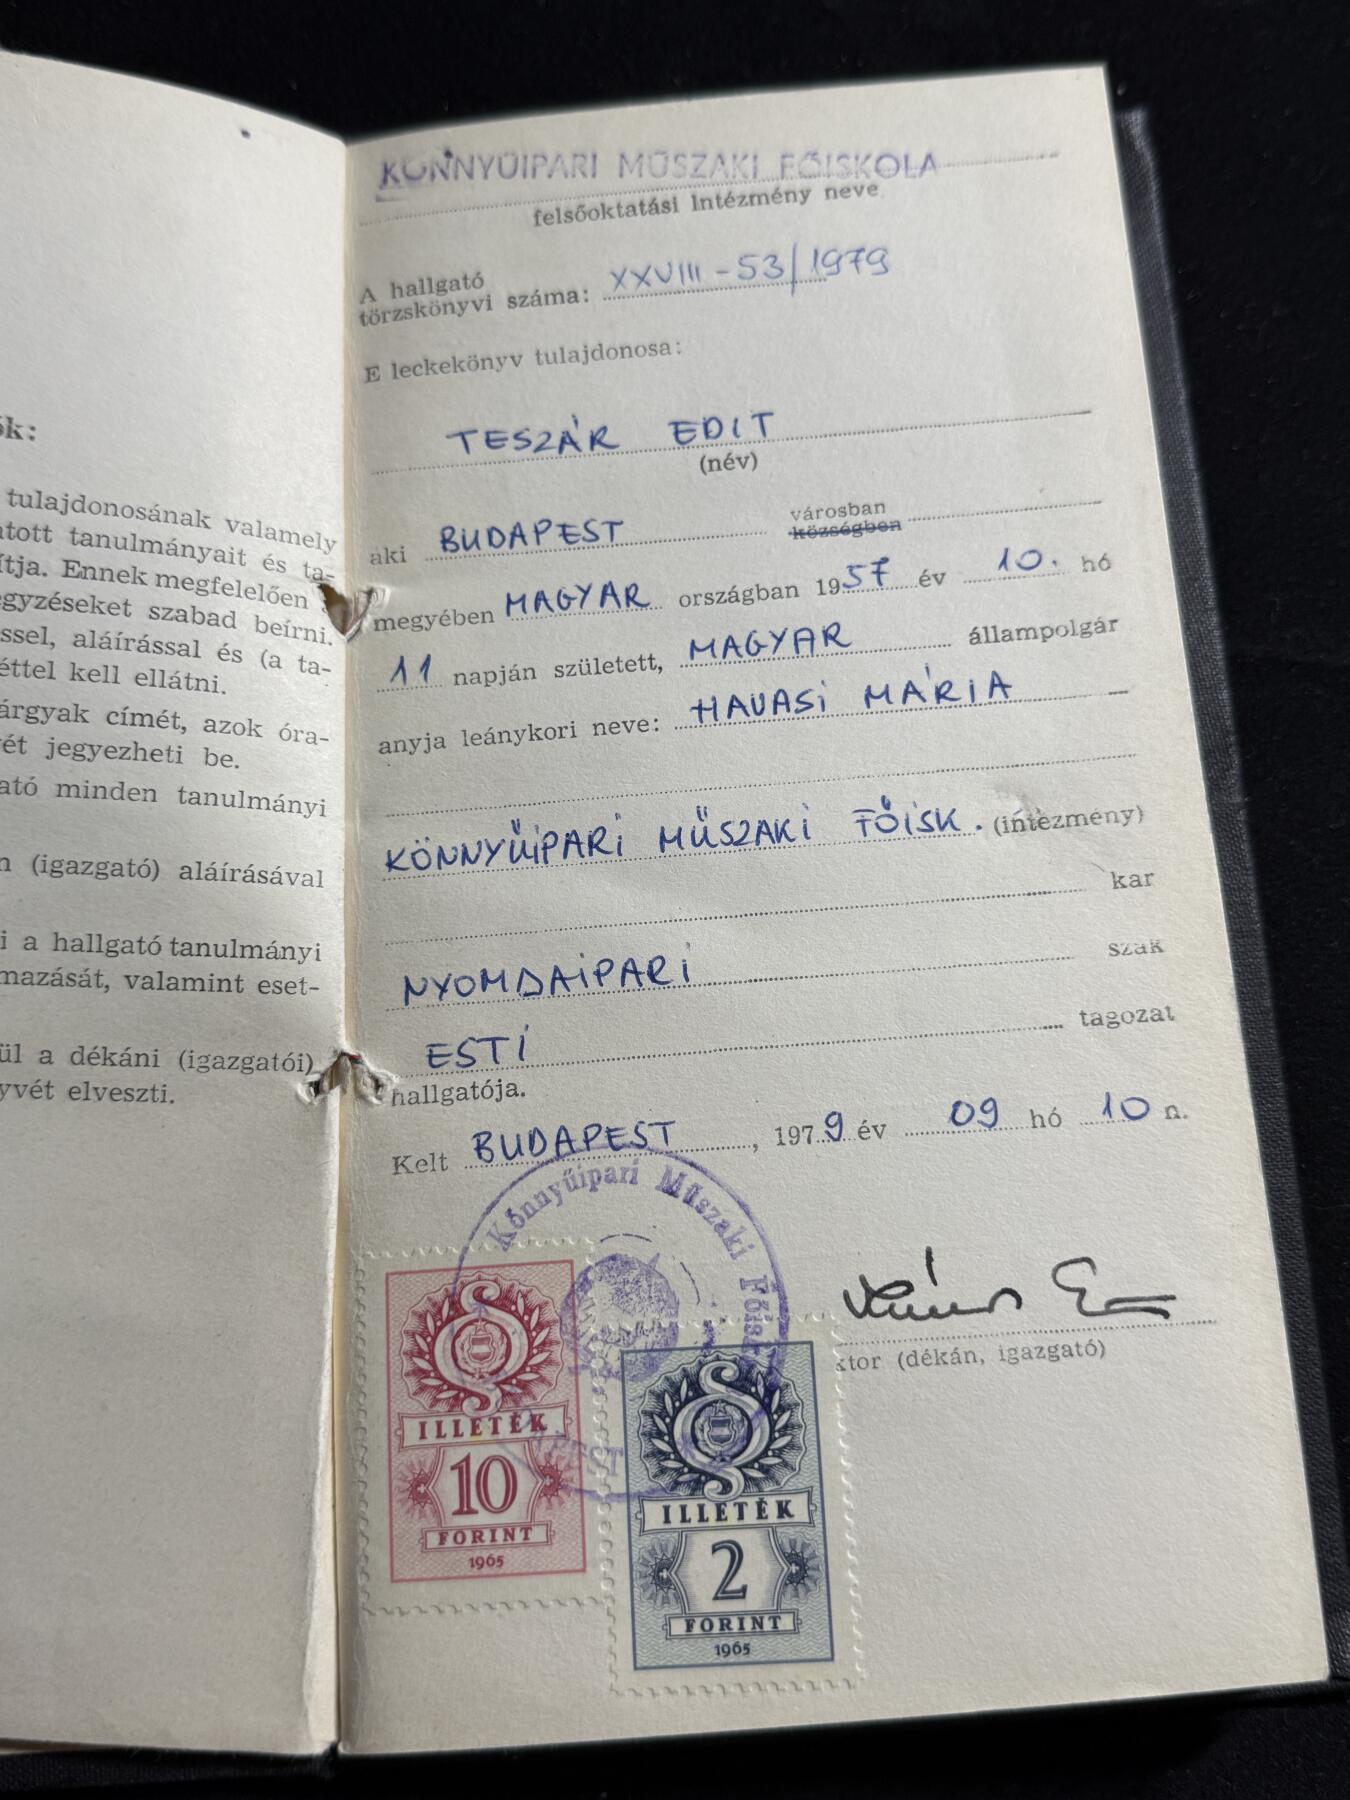 ók:
tulajdonosának valamely
atott tanulmányait és ta-
ítja. Ennek megfelelően
egyzéseket szabad beírni.
ssel, aláírással és (a ta-
éttel kell ellátni.
árgyak címét, azok óra-
ét jegyezheti be.
ató minden tanulmányi
n (igazgató) aláírásával
i a hallgató tanulmányi
mazását, valamint eset-
ül a dékáni (igazgatói)
yvét elveszti.
KÖNNYŰIPARI MŰSZAKI FŐISKOLA
felsőoktatási Intézmény neve
A hallgató
törzskönyvi száma: XXVIII-53/1979
E leckekönyv tulajdonosa:
TESZÁR EDIT
(név)
aki BUDAPEST városban
községben
megyében MAGYAR országban 1957 év 10. hó
11 napján született, MAGYAR állampolgár
anyja leánykori neve: HAVASI MÁRIA
KÖNNYŰIPARI MŰSZAKI FŐISK. (intézmény)
kar
NYOMDAIPARI szak
ESTI tagozat
hallgatója.
Kelt BUDAPEST, 1979 év 09 hó 10 n.
Könnyűipari Műszaki Főisk
ktor (dékán, igazgató)
ILLETÉK
10
FORINT
1965
ILLETÉK
2
FORINT
1965